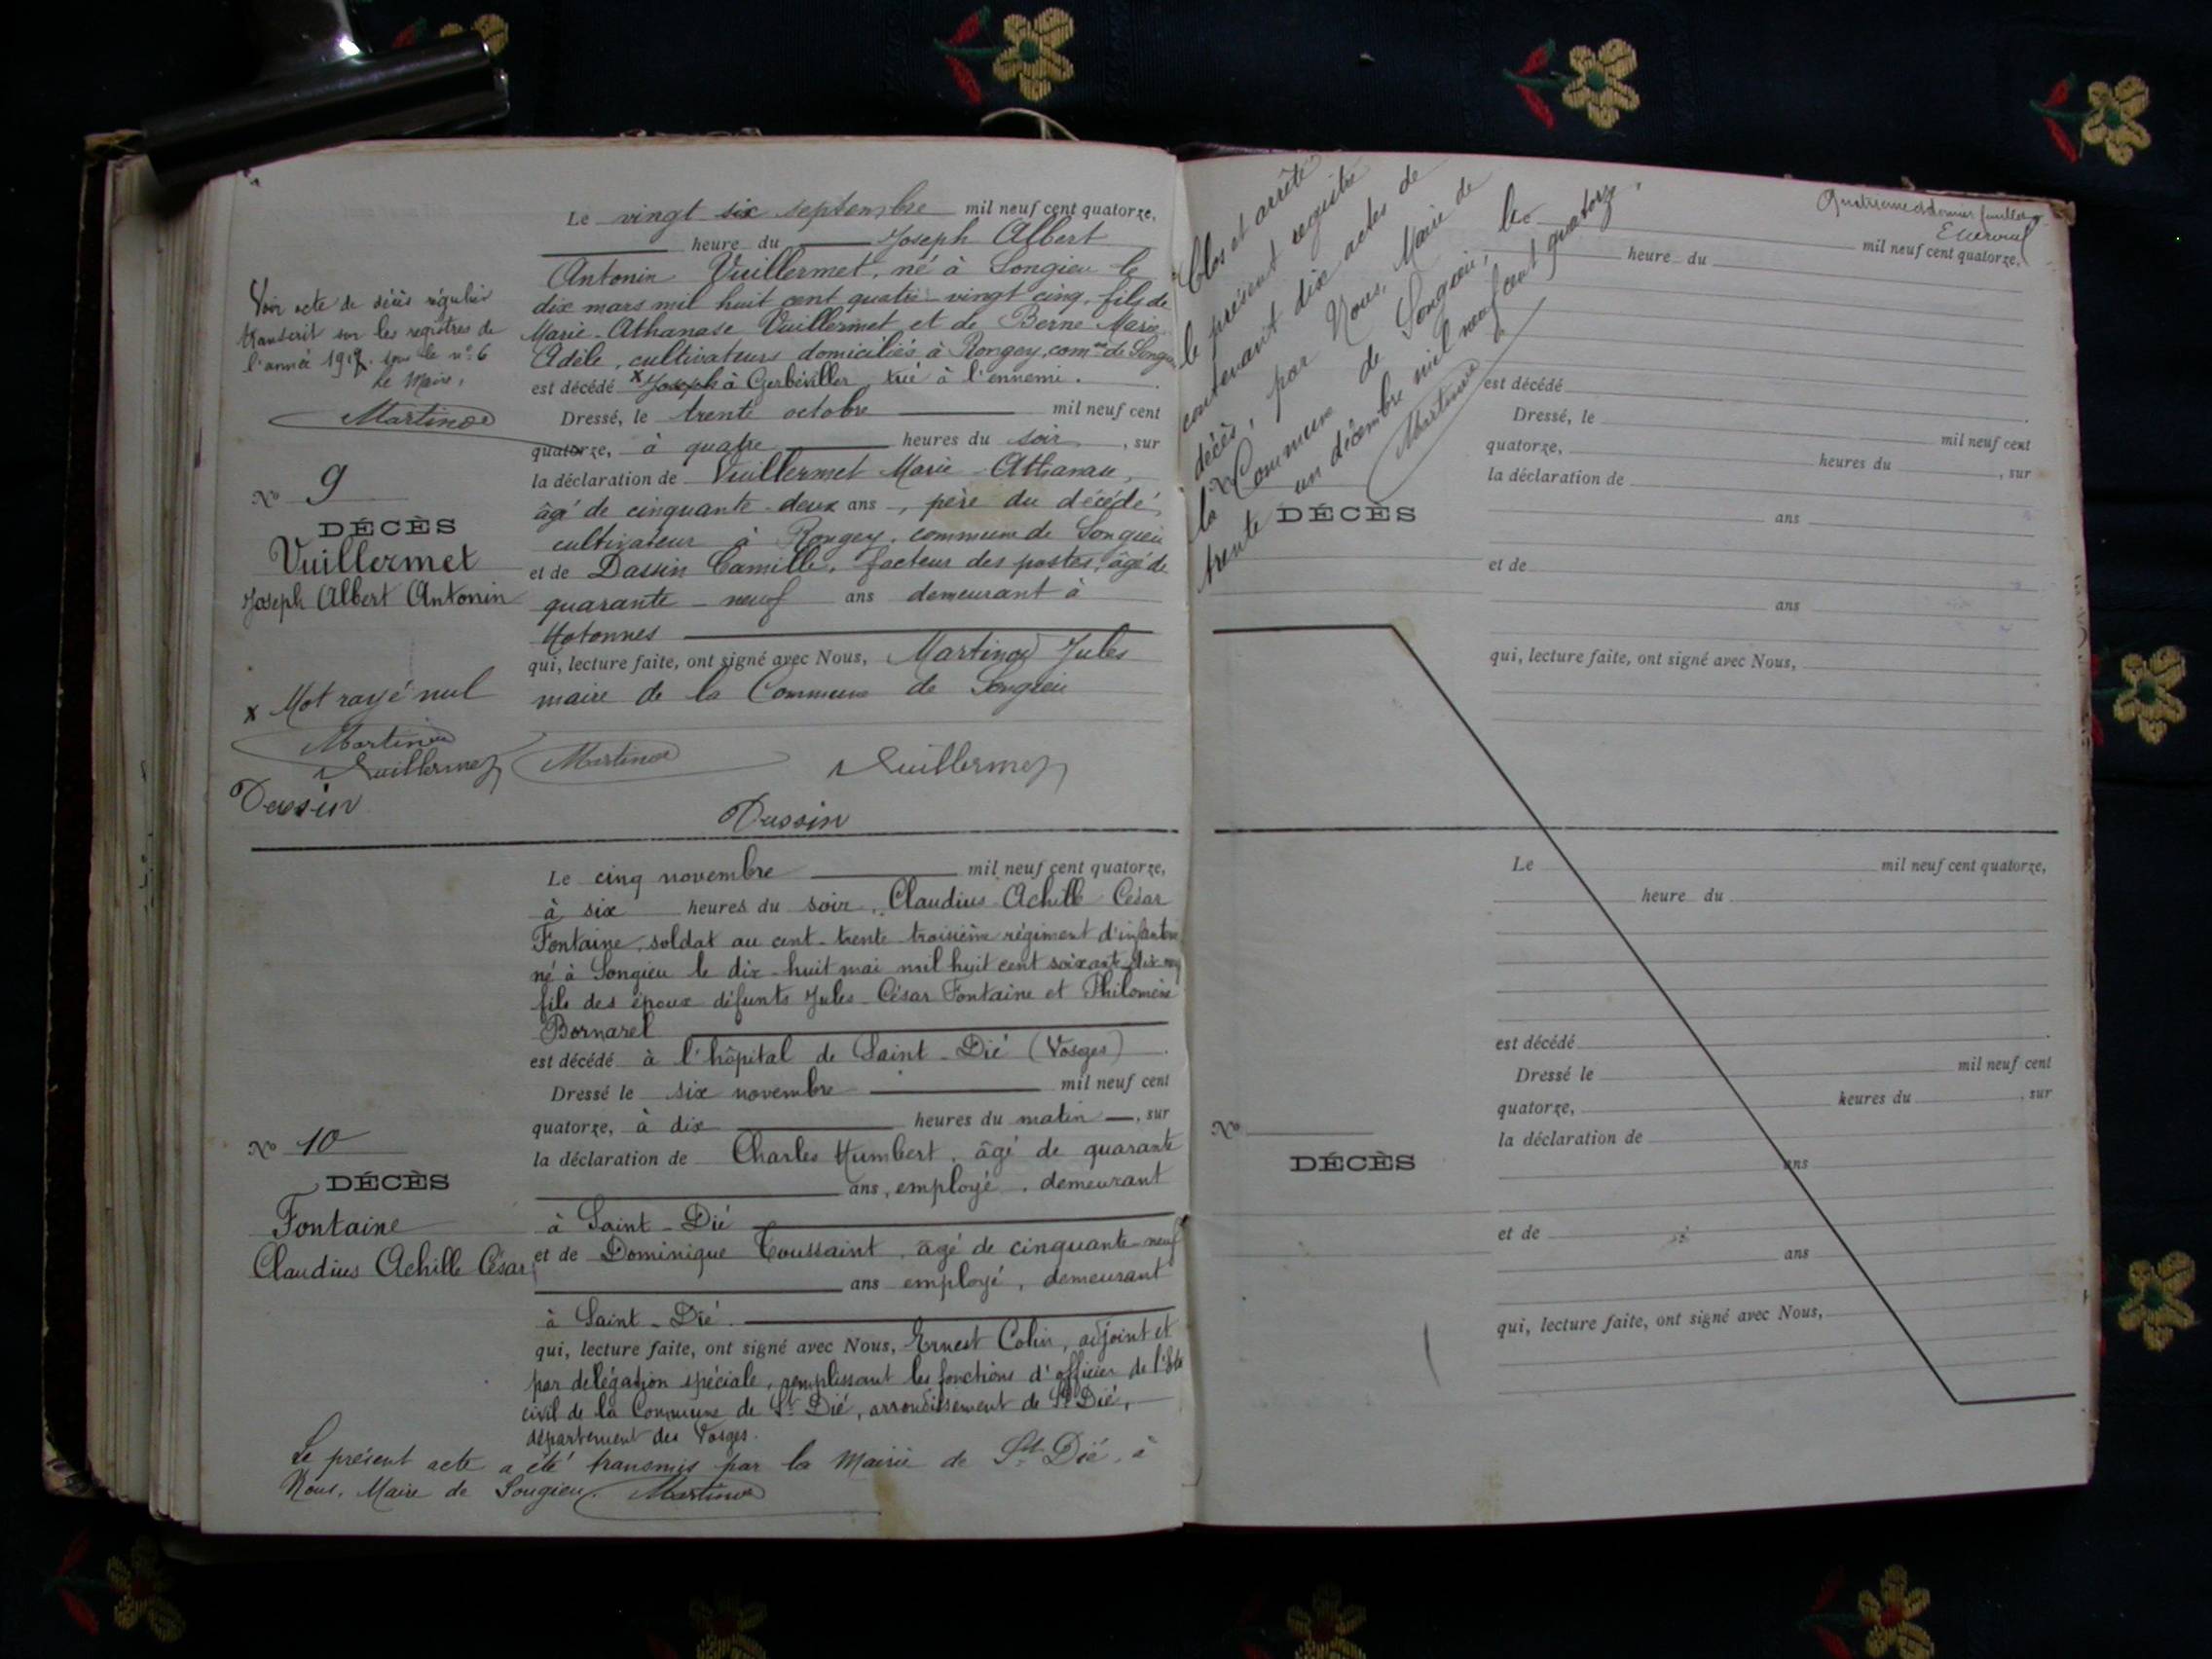 Le vingt six septembre mil neuf cent quatorze,
heure du Joseph Albert
Antonin Vuillermet, né à Songieu le
dix mars mil huit cent quatre-vingt cinq, fils de
Marie-Athanase Vuillermet et de Berne Marie
Adèle, cultivateurs domiciliés à Rongey, comne de Songieu
est décédé x Joseph à Gerbéviller, tué à l'ennemi.
Dressé, le trente octobre mil neuf cent
quatorze, à quatre heures du soir, sur
la déclaration de Vuillermet Marie-Athanase,
âgé de cinquante-deux ans, père du décédé,
cultivateur à Rongey, commune de Songieu
et de Dassin Camille, facteur des postes, âgé de
quarante-neuf ans demeurant à
Hotonnes
qui, lecture faite, ont signé avec Nous, Martinod Jules
maire de la Commune de Songieu
Martinod Vuillermet
Dassin
Voir acte de décès régulier
transcrit sur les registres de
l'année 1917. sous le no 6
Le Maire,
Martinod
No 9
DÉCÈS
Vuillermet
Joseph Albert Antonin
x Mot rayé nul
Martinod
Vuillermet
Dassin
Le cinq novembre mil neuf cent quatorze,
à six heures du soir, Claudius Achille César
Fontaine, soldat au cent-trente-troisième régiment d'infanterie
né à Songieu le dix-huit mai mil huit cent soixante-dix-neuf
fils des époux défunts Jules-César Fontaine et Philomène
Bornarel
est décédé à l'hôpital de Saint-Dié (Vosges).
Dressé le six novembre mil neuf cent
quatorze, à dix heures du matin, sur
la déclaration de Charles Humbert, âgé de quarante
ans, employé, demeurant
à Saint-Dié
et de Dominique Toussaint, âgé de cinquante-neuf
ans employé, demeurant
à Saint-Dié.
qui, lecture faite, ont signé avec Nous, Ernest Colin, adjoint et
par délégation spéciale, remplissant les fonctions d'officier de l'état
civil de la Commune de St Dié, arrondissement de St Dié,
département des Vosges.
No 10
DÉCÈS
Fontaine
Claudius Achille César
Le présent acte a été transmis par la Mairie de St Dié, à
Nous, Maire de Songieu. Martinod
Clos et arrêté
le présent registre
contenant dix actes de
décès, par Nous, Maire de
la Commune de Songieu, le
trente un décembre mil neuf cent quatorze.
Martinod
Quatrième et dernier feuillet
mil neuf cent quatorze,
heure du
est décédé
Dressé, le mil neuf cent
quatorze, heures du , sur
la déclaration de
ans
et de
ans
qui, lecture faite, ont signé avec Nous,
DÉCÈS
Le mil neuf cent quatorze,
heure du
est décédé
Dressé le mil neuf cent
quatorze, heures du , sur
la déclaration de
ans
et de
ans
qui, lecture faite, ont signé avec Nous,
No
DÉCÈS